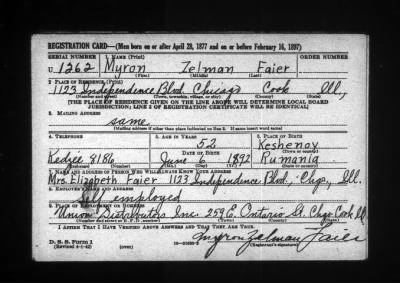 REGISTRATION CARD—(Men born on or after April 28, 1877 and on or before February 16, 1897)
SERIAL NUMBER 1. NAME (Print) ORDER NUMBER
U 1262 Myron Zelman Faier
(First) (Middle) (Last)
2. PLACE OF RESIDENCE (Print)
1123 Independence Blvd Chicago Cook Ill,
(Number and street) (Town, township, village, or city) (County) (State)
[THE PLACE OF RESIDENCE GIVEN ON THE LINE ABOVE WILL DETERMINE LOCAL BOARD
JURISDICTION; LINE 2 OF REGISTRATION CERTIFICATE WILL BE IDENTICAL]
3. MAILING ADDRESS
same
[Mailing address if other than place indicated on line 2. If same insert word same]
4. TELEPHONE 5. AGE IN YEARS 6. PLACE OF BIRTH
52 Keshenov
DATE OF BIRTH (Town or county)
Kedzie 8186 June 6 1892 Rumania
(Exchange) (Number) (Mo.) (Day) (Yr.) (State or country)
7. NAME AND ADDRESS OF PERSON WHO WILL ALWAYS KNOW YOUR ADDRESS
Mrs. Elizabeth Faier 1123 Independence Blvd, Chgo, Ill.
8. EMPLOYER'S NAME AND ADDRESS
Self employed
9. PLACE OF EMPLOYMENT OR BUSINESS
Union Distributors Inc 259 E. Ontario St. Chgo Cook Ill
(Number and street or R. F. D. number) (Town) (County) (State)
I AFFIRM THAT I HAVE VERIFIED ABOVE ANSWERS AND THAT THEY ARE TRUE.
Myron Zelman Faier
D. S. S. Form 1
(Revised 4-1-42) (over) (Registrant's signature)